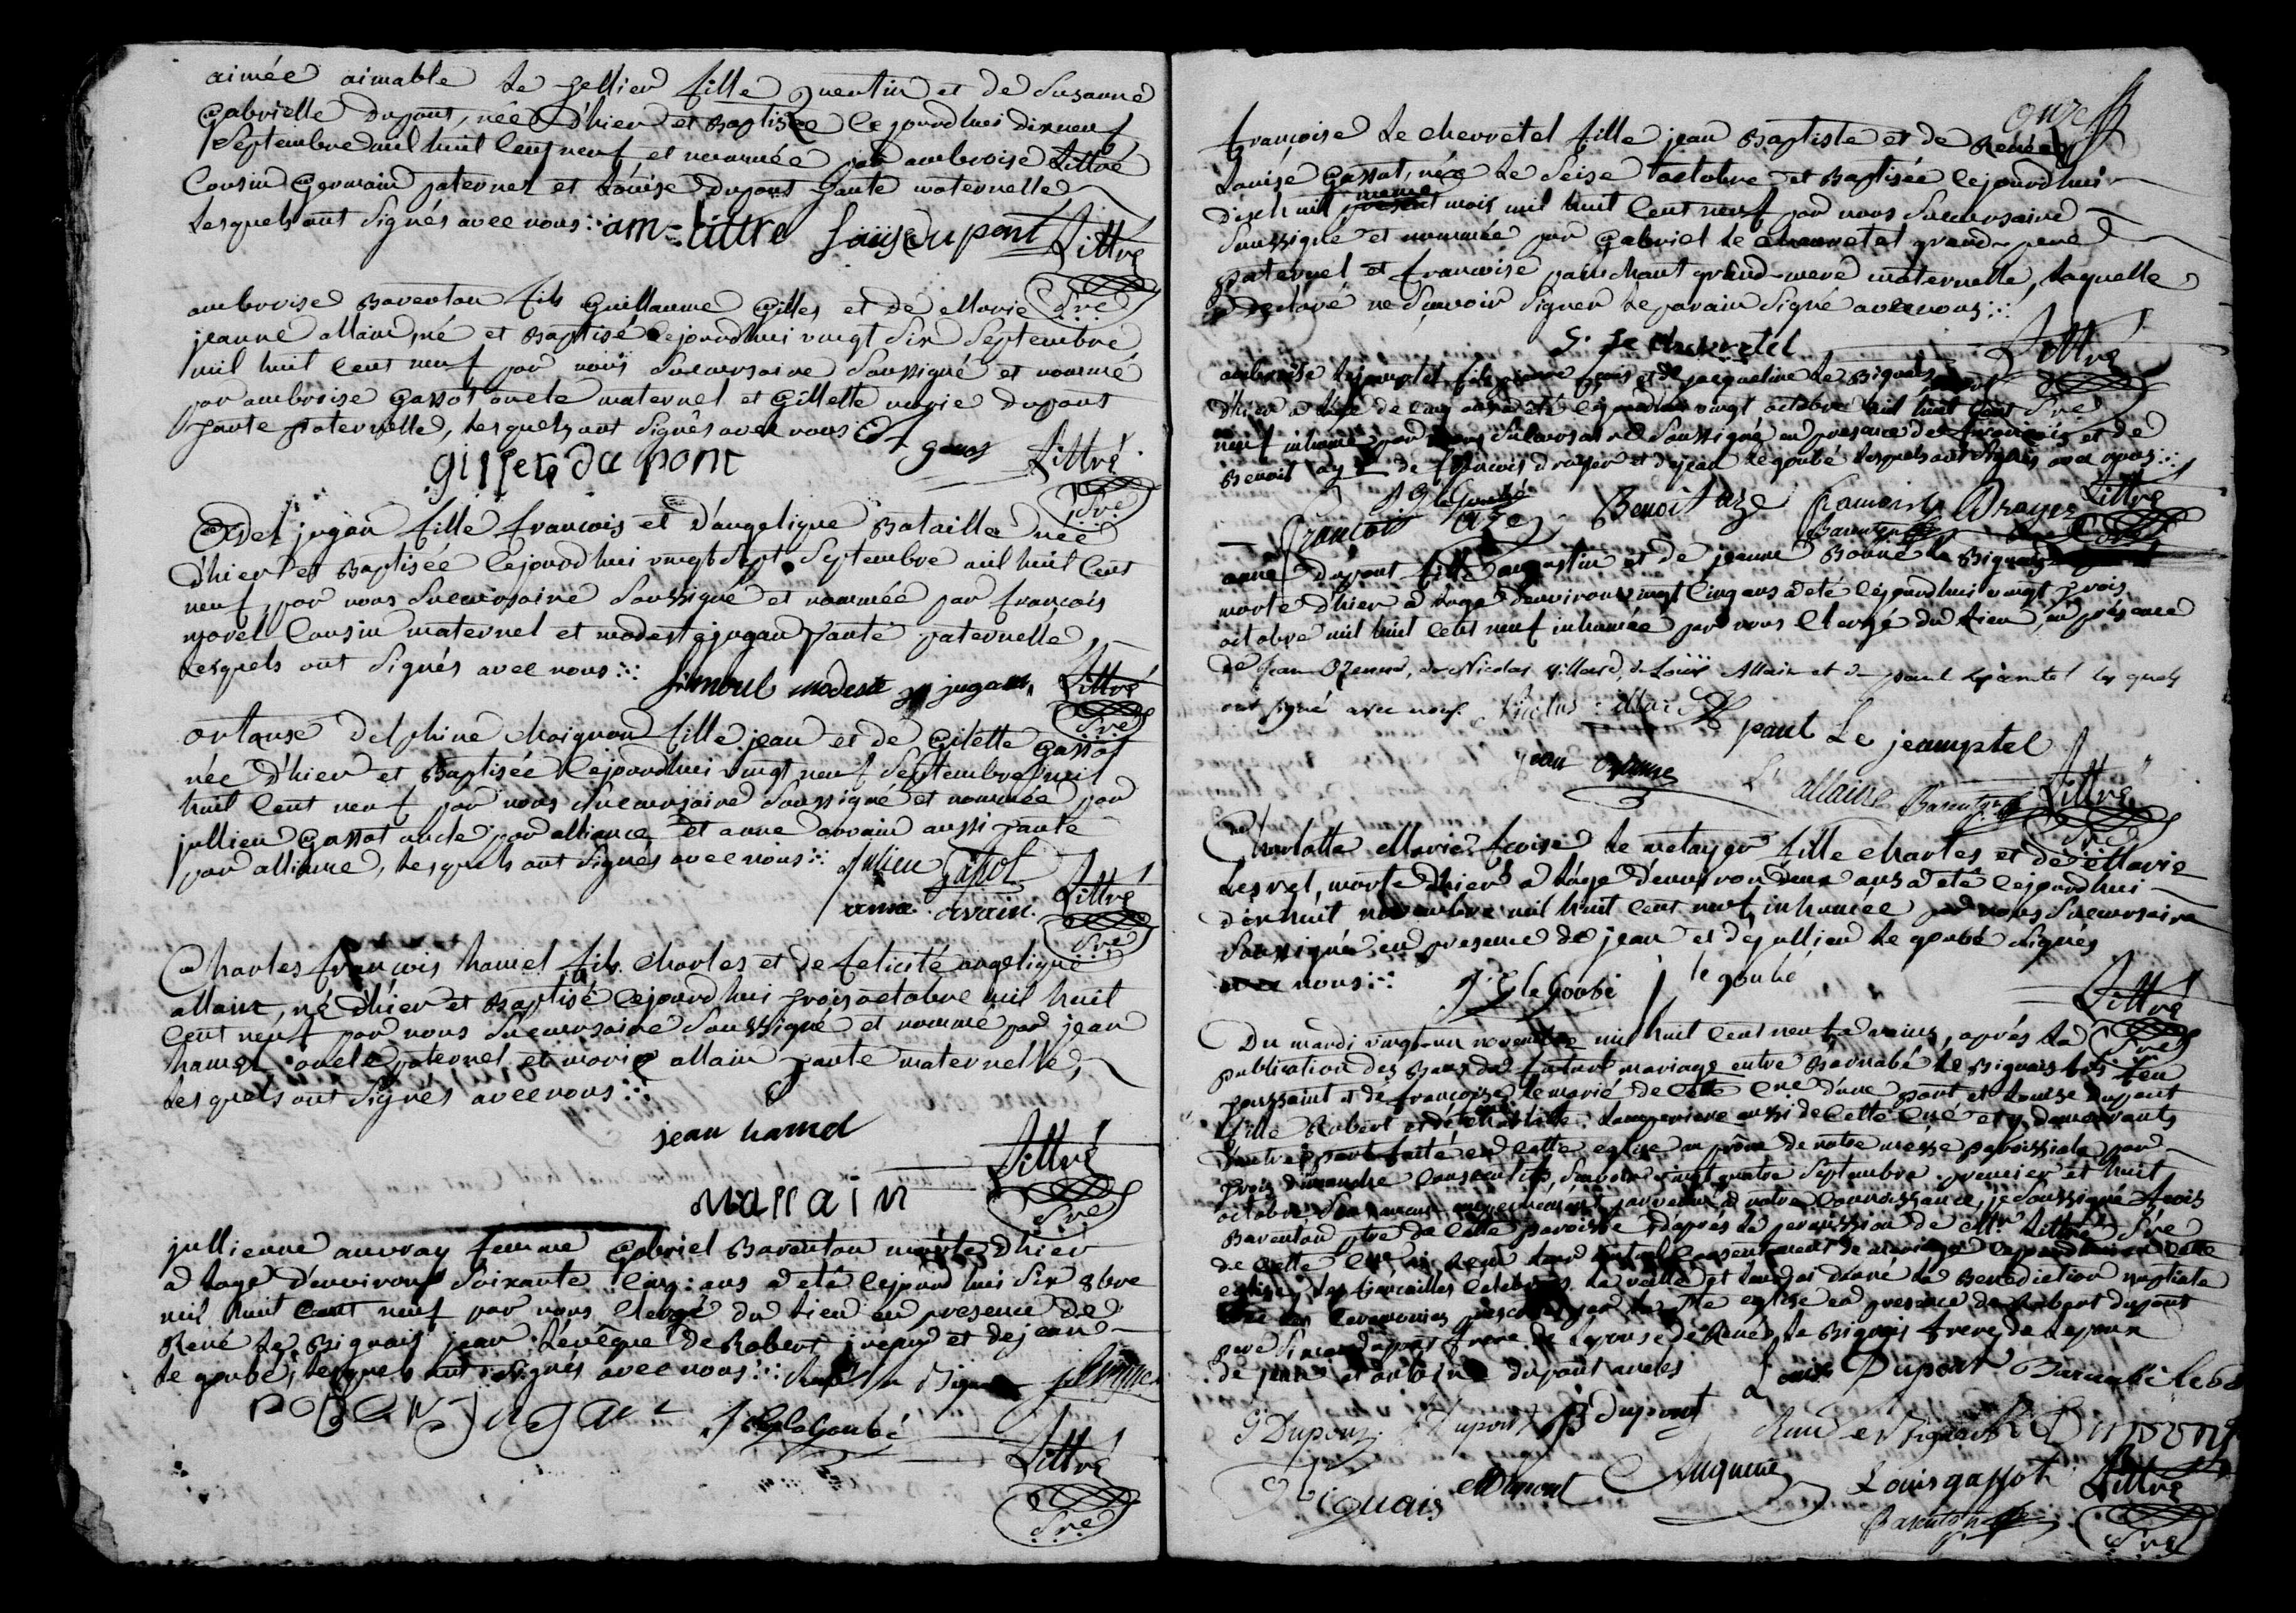 aimée aimable Le tellier fille quentin et de Susanne
Gabrielle Dupont, née d'hier et Baptisée cejourdhui dixneuf
Septembre mil huit Cent neuf, et nommée par ambroise Littré
Cousin Germain paternel et Louise Dupont tante maternelle
Lesquels ont Signés avec nous
am-littre Louise dupont Littré
Sre
ambroise Baventon fils Guillaume Gilles et de Marie
jeanne allain, né et Baptisé cejourdhui vingt Six Septembre
mil huit Cent neuf par nous Succursaire Soussigné et nommé
par ambroise Gassot oncle maternel et Gillette marie dupont
tante paternelle, Lesquels ont Signés avec nous
Littré
du pont
Sre
jugan fille francois et d'angelique Bataille née
d'hier et Baptisée Cejourdhui vingt Sept Septembre mil huit Cent
neuf, par nous Succursaire Soussigné et nommée par francois
morel Cousin maternel et modeste jugan tante paternelle,
Lesquels ont Signés avec nous
modeste jugan Littré
Sre
ortanse delphine choignon fille jean et de Gilette Gassot
née d'hier et Baptisée Cejourdhui vingt neuf Septembre mil
huit Cent neuf par nous Succursaire Soussigné et nommée par
jullien Gassot oncle par alliance et anne avrain aussi tante
par alliance, Lesquels ont Signés avec nous
Julien Gassot
anne avrain Littré
Sre
Charles francois hamel fils Charles et de felicité angelique
allain, né d'hier et Baptisé Cejourdhui trois octobre mil huit
Cent neuf par nous Succursaire Soussigné et nommé par jean
hamel oncle paternel et marie allain tante maternelle,
Lesquels ont Signés avec nous
jean hamel
Littré
Sre
M allain
jullienne auvray femme Gabriel Baventon morte d'hier
a Lage d'environ Soixante Cinq ans a eté Cejourdhui Six 8bre
mil huit Cent neuf par nous Clergé du Lieu en presence de
René Le Bignais jean Levêque de Robert jugan et de jean
Le goubé, Lesquels ont Signés avec nous
Robert jugan Le Goubé
Littré
Sre
onze
françoise Le chevretel fille jean Baptiste et de Renée
Louise Gassot, née Le Seise octobre et Baptisée Cejourdhui
dixhuit même mois mil huit Cent neuf par nous Succursaire
Soussigné et nommée par Gabriel Le chevretel grand-pere
paternel et francoise painchaut grand-mere maternelle, Laquelle
a declaré ne Savoir Signer Le parain Signé avec nous
G. Le Chevretel
Littré
Sre
ambroise Lejamptel fils pierre et de jacqueline Le Bignais mort
d'hier a Lage de Cinq ans a eté Cejourdhui vingt octobre mil huit Cent
neuf inhumé par nous Succursaire Soussigné en presence de francois et de
Benoit azé de francois drager et de jean Le goubé Lesquels ont Signés avec nous
Le Goubé
Francois azé Benoît azé Littré
anne dupont fille augustin et de jeanne Bonne Le Bignais
morte d'hier a Lage d'environ vingt Cinq ans a eté Cejourdhui vingt trois
octobre mil huit Cent neuf inhumée par nous Clergé du Lieu, en présence
de Jean Ozenne, de Nicolas Villard, de Louis Allain et de paul Lejamtel Les quels
ont signé avec nous.
Nicolas Villard paul Le jeamptel
jean Ozenne allaire Littré
Sre
Charlotte Marie Le metayer fille Charles et de Marie
Lesvel, morte d'hier a Lage d'environ deux ans a eté Cejourdhui
dixhuit novembre mil huit Cent neuf inhumée par nous Succursaire
Soussigné en presence de jean et de jullien Le goubé Signés
avec nous
Le Goubé j le goubé
Littré
Sre
Du mardi vingt un novembre mil huit Cent neuf, après La
publication des Bans du futur mariage entre Barnabé Le Bignais fils feu
toussaint et de francoise Lemarié de Cette Cne d'une part, et Louise dupont
fille Robert aussi de Cette Cne et y demeurants
d'autre part faite en Cette eglise au prône de notre messe paroissiale par
trois dimanche Consecutifs, Savoir vingt quatre Septembre premier et huit
octobre parvenu a notre Connoissance, je Soussigné
Baventon ptre de Cette paroisse d'apres La permission de Mr Littré Sre
de Cette Cne ai reçu Leur mutuel Consentement de mariage Cejourdhui en Cette
eglise, Les fiancailles Celebrées La veille et Leur ai donné La Benediction nuptiale
Ceremonies par La Ste eglise en presence de Robert dupont
pere Simon dupont frere de Lepouse de René Le Bignais frere de Lepoux
de jean et antoine dupont oncles
Louise Dupont Barnabé
Dupont Dupont dupont
Louis gassot Littré
Sre